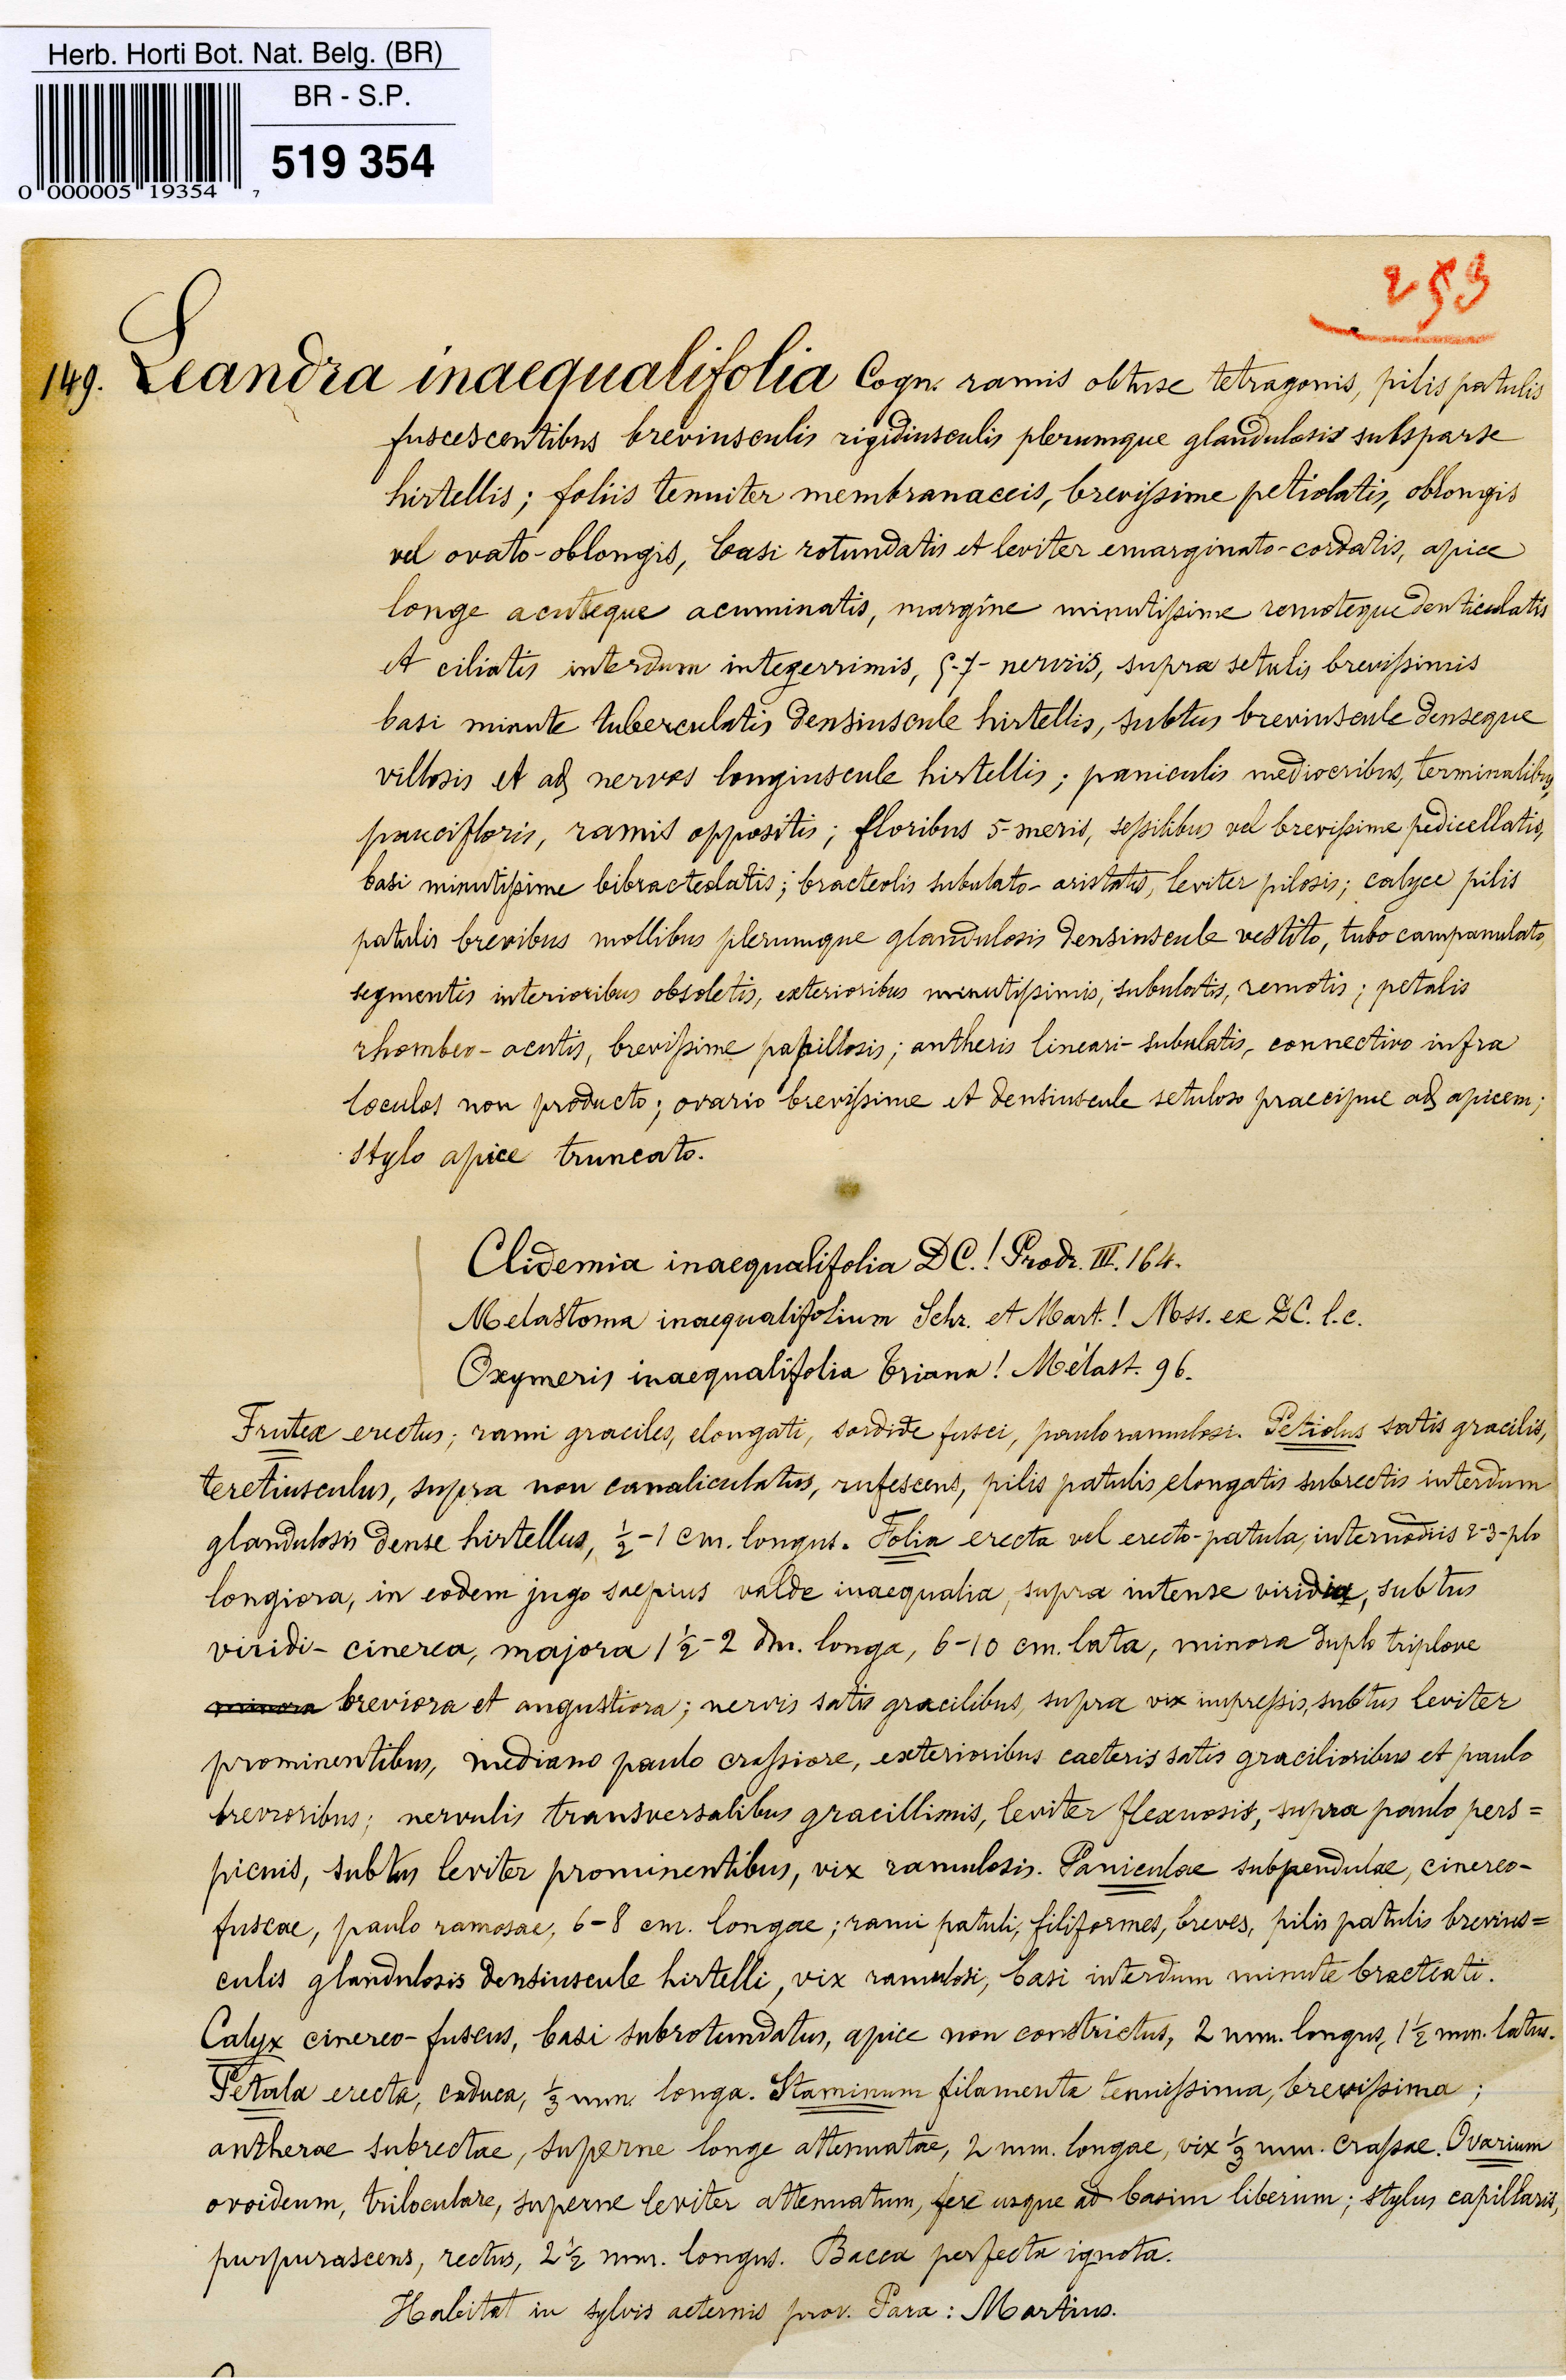 Herb. Horti Bot. Nat. Belg. (BR)
BR - S.P.
519 354
0 000005 19354 7
253
149. Leandra inaequalifolia Cogn. ramis obtuse tetragonis, pilis patulis
fuscescentibus breviusculis rigidiusculis plerumque glandulosis subsparse
hirtellis; foliis tenuiter membranaceis, brevissime petiolatis, oblongis
vel ovato-oblongis, basi rotundatis et leviter emarginato-cordatis, apice
longe acuteque acuminatis, margine minutissime remoteque denticulatis
et ciliatis interdum integerrimis, 5-7-nerviis, supra setulis brevissimis
basi minute tuberculatis densiuscule hirtellis, subtus breviuscule denseque
villosis et ad nervos longiuscule hirtellis; paniculis mediocribus, terminalibus,
paucifloris, ramis oppositis; floribus 5-meris, sessilibus vel brevissime pedicellatis,
basi minutissime bibracteolatis; bracteolis subulato-aristatis, leviter pilosis; calyce pilis
patulis brevibus mollibus plerumque glandulosis densiuscule vestito, tubo campanulato,
segmentis interioribus obsoletis, exterioribus minutissimis, subulatis, remotis; petalis
rhombeo-acutis, brevissime papillosis; antheris lineari-subulatis, connectivo infra
loculos non producto; ovario brevissime et densiuscule setuloso praecipue ad apicem;
stylo apice truncato.
Clidemia inaequalifolia DC.! Prodr. III. 164.
Melastoma inaequalifolium Schr. et Mart.! Mss. ex DC. l.c.
Oxymeris inaequalifolia Triana! Mélast. 96.
Frutex erectus; rami graciles, elongati, sordide fusci, paulo ramulosi. Petiolus satis gracilis,
teretiusculus, supra non canaliculatus, rufescens, pilis patulis elongatis subrectis interdum
glandulosis dense hirtellus, ½-1 cm. longus. Folia erecta vel erecto-patula, internodiis 2-3-plo
longiora, in eodem jugo saepius valde inaequalia, supra intense viridia, subtus
viridi-cinerea, majora 1½-2 dm. longa, 6-10 cm. lata, minora duplo triplove
minora breviora et angustiora; nervis satis gracilibus, supra vix impressis, subtus leviter
prominentibus, mediano paulo crassiore, exterioribus caeteris satis gracilioribus et paulo
brevioribus; nervulis transversalibus gracillimis, leviter flexuosis, supra paulo pers=
picuis, subtus leviter prominentibus, vix ramulosis. Paniculae subpendulae, cinereo-
fuscae, paulo ramosae, 6-8 cm. longae; rami patuli, filiformes, breves, pilis patulis brevius=
culis glandulosis densiuscule hirtelli, vix ramulosi, basi interdum minute bracteati.
Calyx cinereo-fuscus, basi subrotundatus, apice non constrictus, 2 mm. longus, 1½ mm. latus.
Petala erecta, caduca, ⅓ mm. longa. Staminum filamenta tenuissima, brevissima;
antherae subrectae, superne longe attenuatae, 2 mm. longae, vix ⅓ mm. crassae. Ovarium
ovoideum, triloculare, superne leviter attenuatum, fere usque ad basim liberum; stylus capillaris,
purpurascens, rectus, 2½ mm. longus. Bacca perfecta ignota.
Habitat in sylvis aeternis prov. Para: Martius.